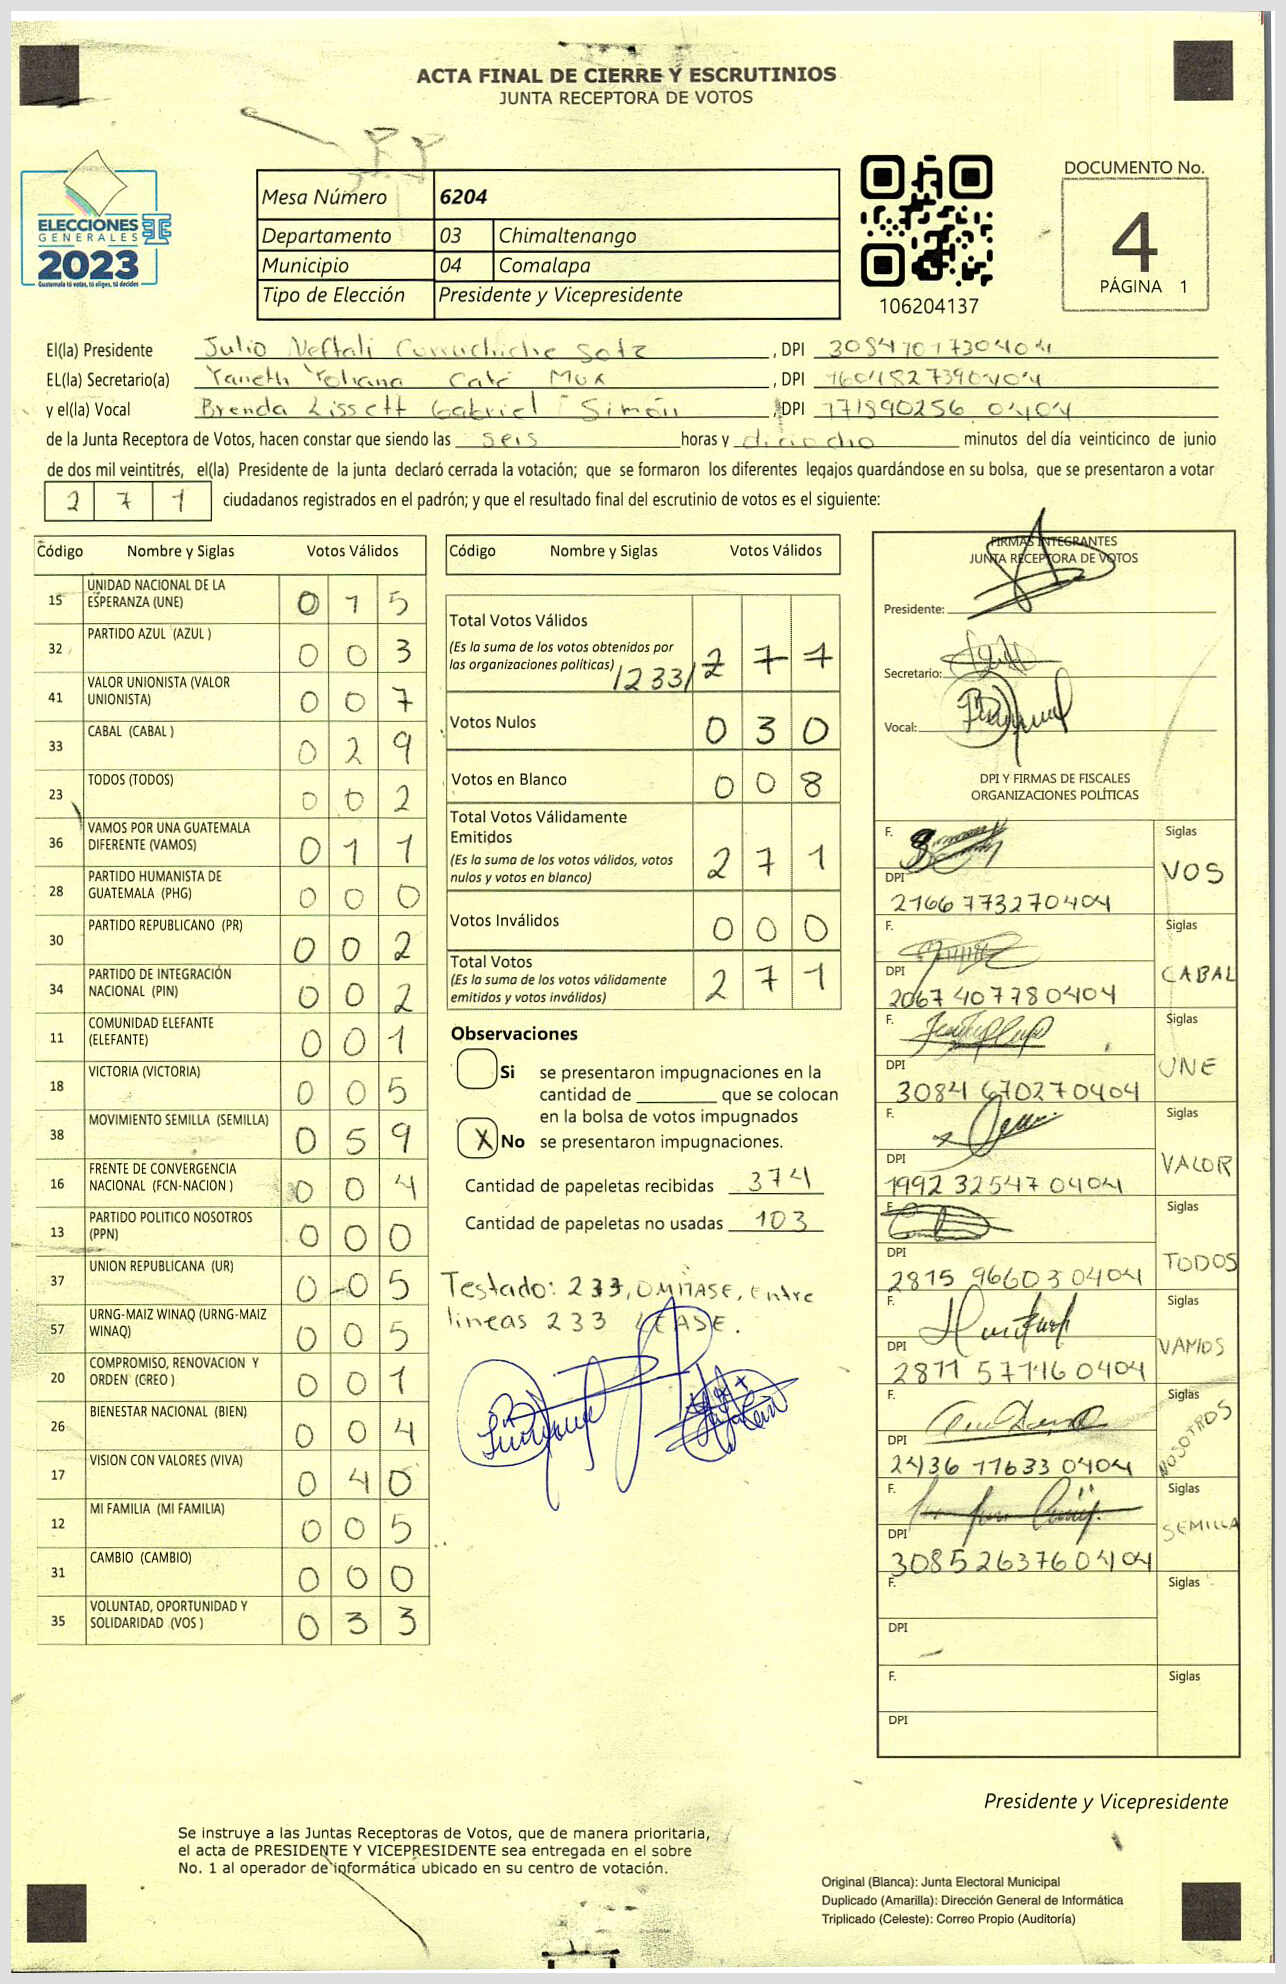 ACTA FINAL DE CIERRE Y ESCRUTINIOS
JUNTA RECEPTORA DE VOTOS
ELECCIONES
GENERALES
2023
Guatemala tú votas, tú eliges, tú decides
Mesa Número 6204
Departamento 03 Chimaltenango
Municipio 04 Comalapa
Tipo de Elección Presidente y Vicepresidente
106204137
DOCUMENTO No.
4
PÁGINA 1
El(la) Presidente Julio Neftali Sotz , DPI 3084701730404
EL(la) Secretario(a) Yaneth Yohana Mux , DPI 1604827390404
y el(la) Vocal Brenda Lissett Gabriel Simón , DPI 771890256 0404
de la Junta Receptora de Votos, hacen constar que siendo las seis horas y dieciocho minutos del día veinticinco de junio
de dos mil veintitrés, el(la) Presidente de la junta declaró cerrada la votación; que se formaron los diferentes legajos quardándose en su bolsa, que se presentaron a votar
2 7 1 ciudadanos registrados en el padrón; y que el resultado final del escrutinio de votos es el siguiente:
Código Nombre y Siglas Votos Válidos
15 UNIDAD NACIONAL DE LA ESPERANZA (UNE) 0 1 5
32 PARTIDO AZUL (AZUL ) 0 0 3
41 VALOR UNIONISTA (VALOR UNIONISTA) 0 0 7
33 CABAL (CABAL ) 0 2 9
23 TODOS (TODOS) 0 0 2
36 VAMOS POR UNA GUATEMALA DIFERENTE (VAMOS) 0 1 1
28 PARTIDO HUMANISTA DE GUATEMALA (PHG) 0 0 0
30 PARTIDO REPUBLICANO (PR) 0 0 2
34 PARTIDO DE INTEGRACIÓN NACIONAL (PIN) 0 0 2
11 COMUNIDAD ELEFANTE (ELEFANTE) 0 0 1
18 VICTORIA (VICTORIA) 0 0 5
38 MOVIMIENTO SEMILLA (SEMILLA) 0 5 9
16 FRENTE DE CONVERGENCIA NACIONAL (FCN-NACION ) 0 0 4
13 PARTIDO POLITICO NOSOTROS (PPN) 0 0 0
37 UNION REPUBLICANA (UR) 0 0 5
57 URNG-MAIZ WINAQ (URNG-MAIZ WINAQ) 0 0 5
20 COMPROMISO, RENOVACION Y ORDEN (CREO ) 0 0 1
26 BIENESTAR NACIONAL (BIEN) 0 0 4
17 VISION CON VALORES (VIVA) 0 4 0
12 MI FAMILIA (MI FAMILIA) 0 0 5
31 CAMBIO (CAMBIO) 0 0 0
35 VOLUNTAD, OPORTUNIDAD Y SOLIDARIDAD (VOS ) 0 3 3
Código Nombre y Siglas Votos Válidos
Total Votos Válidos
(Es la suma de los votos obtenidos por
las organizaciones políticas) /233/ 2 7 1
Votos Nulos 0 3 0
Votos en Blanco 0 0 8
Total Votos Válidamente
Emitidos
(Es la suma de los votos válidos, votos
nulos y votos en blanco) 2 7 1
Votos Inválidos 0 0 0
Total Votos
(Es la suma de los votos válidamente
emitidos y votos inválidos) 2 7 1
Observaciones
Si se presentaron impugnaciones en la
cantidad de ________ que se colocan
en la bolsa de votos impugnados
X No se presentaron impugnaciones.
Cantidad de papeletas recibidas 374
Cantidad de papeletas no usadas 103
Testado: 233, OMITASE, Entre
lineas 233 LEASE.
FIRMAS INTEGRANTES
JUNTA RECEPTORA DE VOTOS
Presidente:
Secretario:
Vocal:
DPI Y FIRMAS DE FISCALES
ORGANIZACIONES POLÍTICAS
F. Siglas VOS
DPI 2166 773270404
F. Siglas CABAL
DPI 2067 407780404
F. Siglas UNE
DPI 3084 670270404
F. Siglas VALOR
DPI 1992 325470404
F. Siglas TODOS
DPI 2815 966030404
F. Siglas VAMOS
DPI 2871 571160404
F. Siglas NOSOTROS
DPI 2436 776330404
F. Siglas SEMILLA
DPI 3085 263760404
F. Siglas
DPI
F. Siglas
DPI
Presidente y Vicepresidente
Se instruye a las Juntas Receptoras de Votos, que de manera prioritaria,
el acta de PRESIDENTE Y VICEPRESIDENTE sea entregada en el sobre
No. 1 al operador de informática ubicado en su centro de votación.
Original (Blanca): Junta Electoral Municipal
Duplicado (Amarilla): Dirección General de Informática
Triplicado (Celeste): Correo Propio (Auditoría)